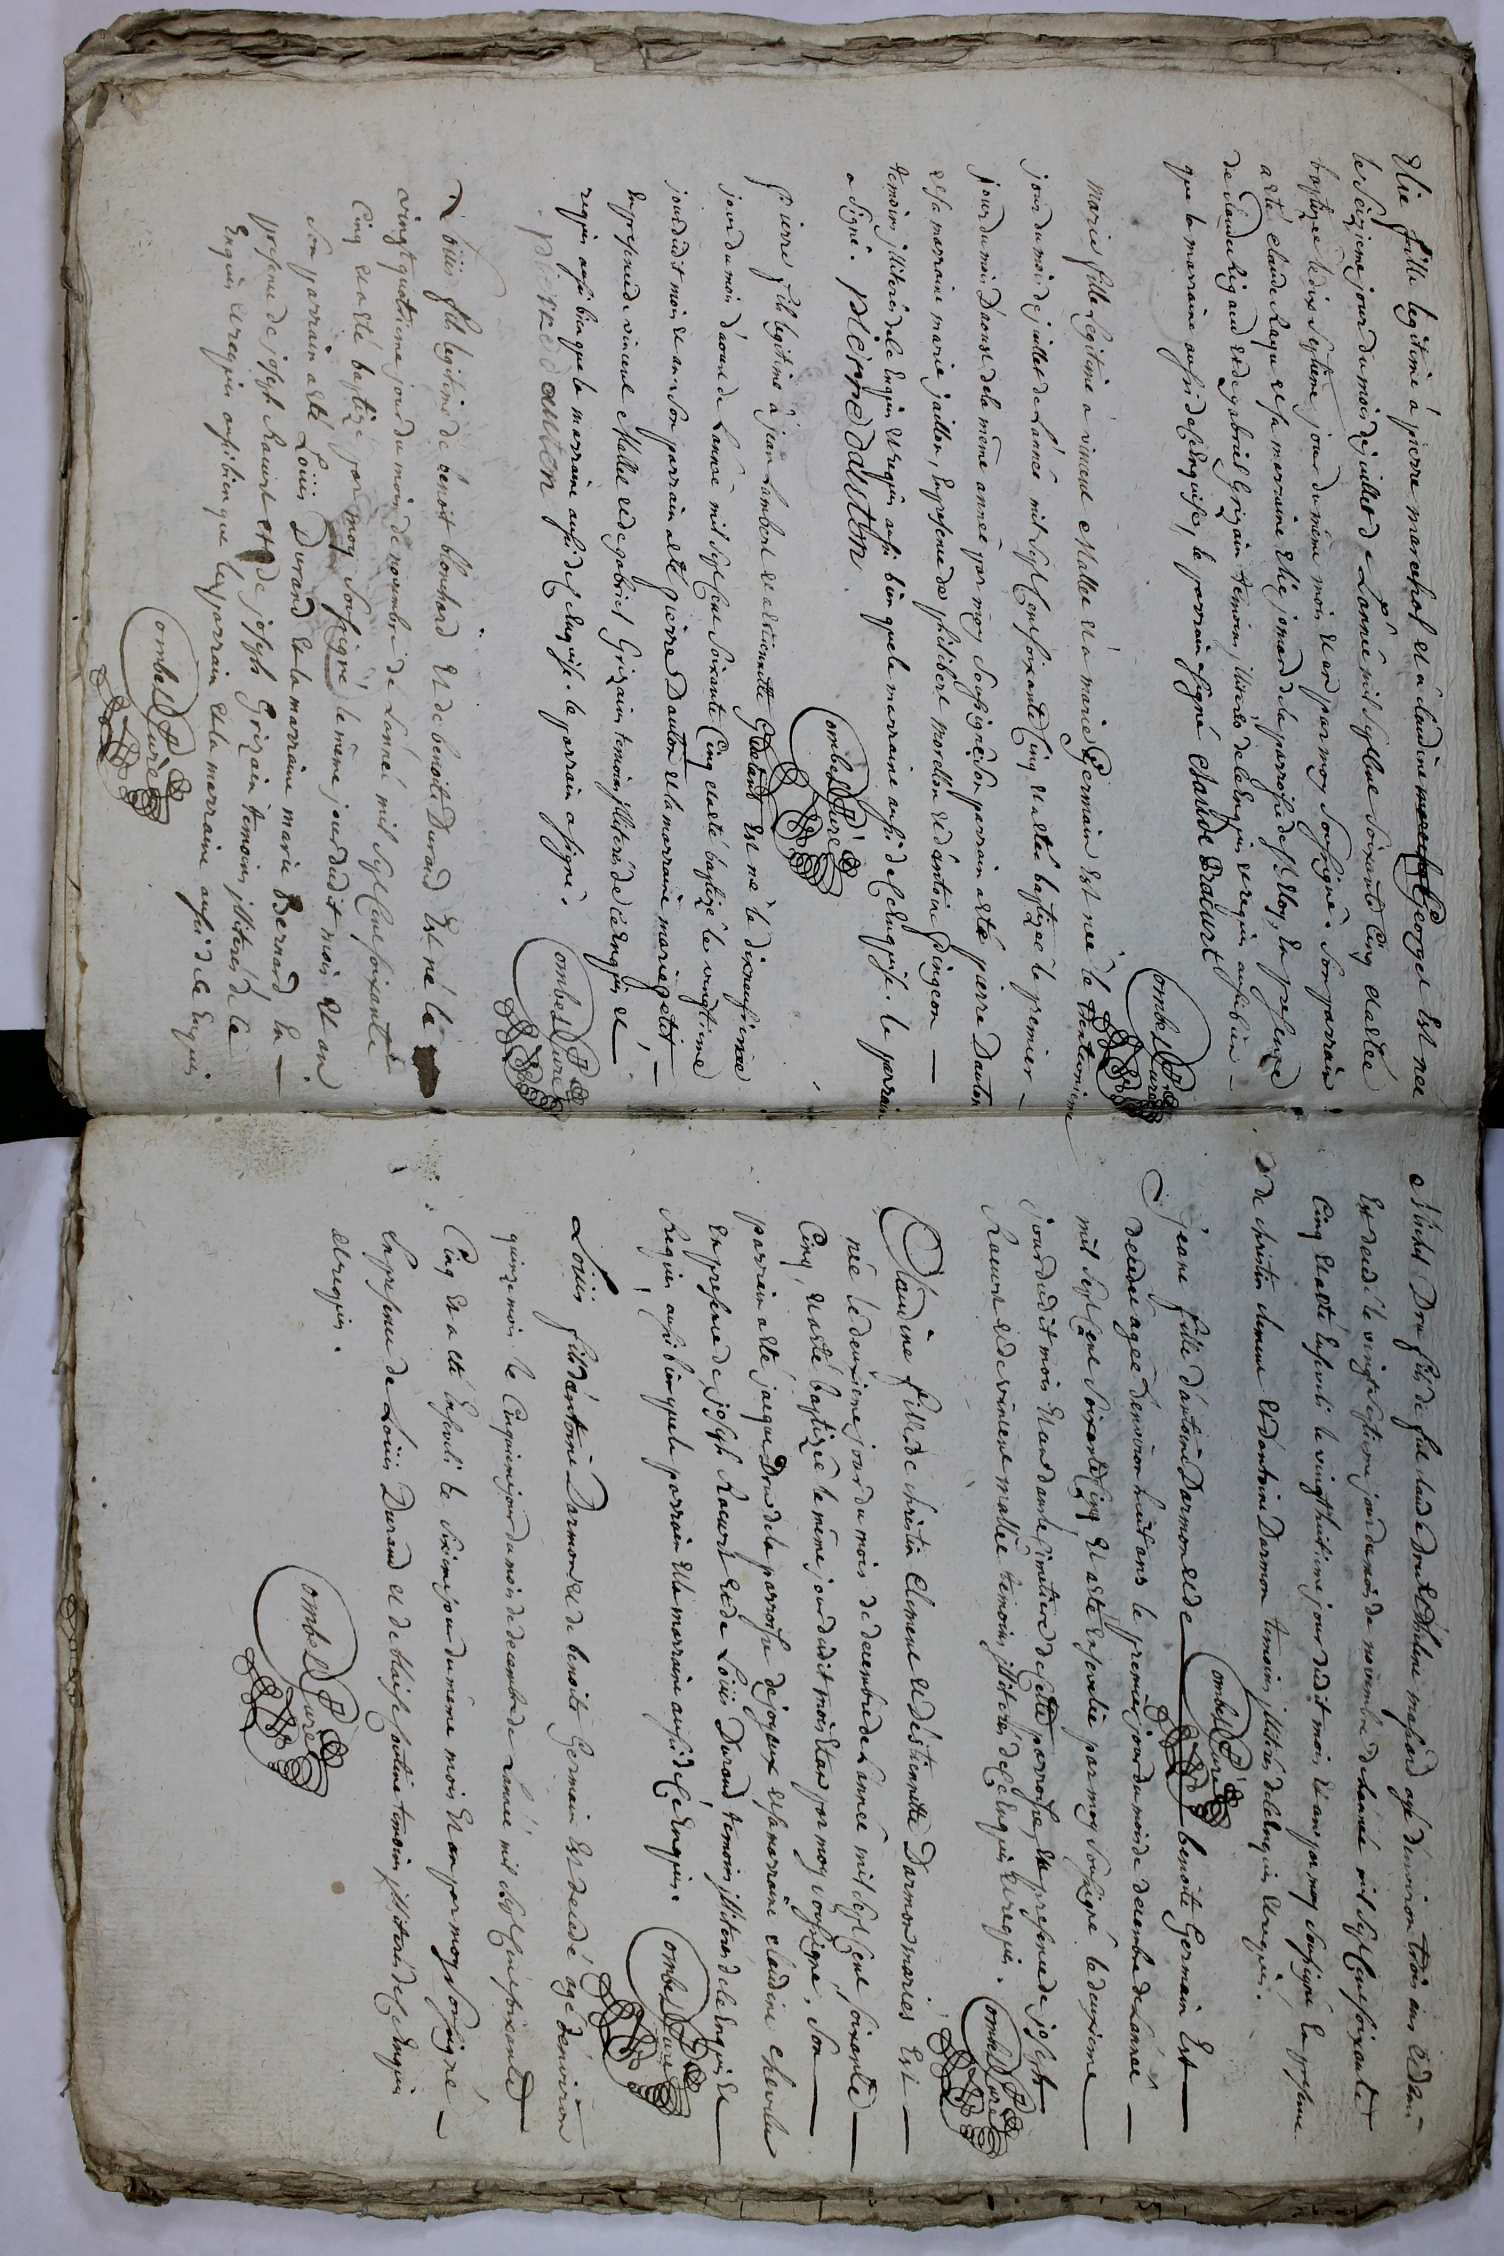 Elie fille legitime à pierre marechal et à claudine George est née
le seizieme jour du mois de juillet de Lannée mil sept cent soixante cinq et a eté
baptizée le dix septieme jour du même mois et an par moy soussigné. Son parrain
a eté claude et sa marraine Elie jomard de la parroisse de St Eloy, En presence
de claude Rigaud et de gabriel Grizain temoins illiterés de ce Enquis et requis aussi bien
que la marraine aussi de ce Enquise, le parrain a signé claude Bracurt
Combes Curé
Marie fille legitime à vincent Mallee et à marie Germain est née le trentunieme
jour du mois de juillet de Lannée mil sept cent soixante Cinq et a eté baptizée le premier
jour du mois Daoust de la même année par moy Soussigné Son parrain a eté pierre Dauton
et sa marraine marie jaillon, En presence de philibert morellon et d'antoine Gringeon
temoins illiterés de ce Enquis et requis aussi bien que la marraine aussi de ce Enquise. le parrain
a signé. pierre dauton
Combes Curé
Pierre fils legitime à jean Lambert et à etiennette est né le dixneufieme
jour du mois d'aoust de Lannée mil sept cent soixante Cinq et a eté baptizé le vingtieme
jour dudit mois et an Son parrain a eté pierre Dauton et la marraine marie petit
En presence de vincent Mallee et de gabriel Grizain temoins illiterés de ce Enquis et
requis aussi bien que la marraine aussi de ce Enquise. le parrain a signé.
pierre dauton
Combes Curé
Loüis fils legitime de benoit blanchard et de benoite Durand Est né le
vingt quatrieme jour du mois de novembre de Lannée mil sept cent soixante
Cinq et a eté baptizé par moy Soussigné le même jour dudit mois et an
son parrain a eté Loüis Durand et la marraine marie Bernard En
presence de joseph Racurt et de joseph Grizain temoins illiterés de ce
Enquis et requis aussi bien que le parrain et la marraine aussi de ce Enquis
Combes Curé
Michel Dru fils de feu claude Dru et d'helene agé d'environ trois ans
Est decedé le vingt septieme jour du mois de novembre de Lannée mil sept cent soixante
Cinq et a eté Enseveli le vingthuitieme jour dudit mois et an par moy Soussigné En presence
de christin clement et d'antoine Darmon temoins illiterés de ce Enquis et requis.
Combes Curé
jeane fille d'antoine Darmon et de benoite Germain Est
decedée agée d'environ huit ans le premier jour du mois de decembre de Lannée
mil sept cent soixante Cinq et a eté Ensevelie par moy Soussigné le deuxieme
jour dudit mois et an dans le Cimetiere de cette parroisse, En presence de joseph
Racurt et de vincent mallée temoins illiterés de ce Enquis et requis.
Combes Curé
Claudine fille de christin Clement et d'etiennette Darmon mariés Est
née le deuxieme jour du mois de decembre de Lannée mil sept cent soixante
Cinq, et a eté baptizée le même jour dudit mois et an par moy soussigné, Son
parrain a eté jacque Dru de la parroisse de joyeux et sa marraine claudine
En presence de joseph Racurt et de Loüis Durand temoins illiterés de ce Enquis et
Requis aussi bien que le parrain et la marraine aussi de ce Enquis.
Combes Curé
Loüis fils d'antoine Darmon et de benoite Germain Est decedé agé d'environ
quinze mois le Cinquieme jour du mois de decembre de Lannée mil sept cent soixante
Cinq et a eté Enseveli le sixieme jour du même mois et an par moy soussigné
En presence de Loüis Durand et de temoins illiterés de ce Enquis
et requis.
Combes Curé